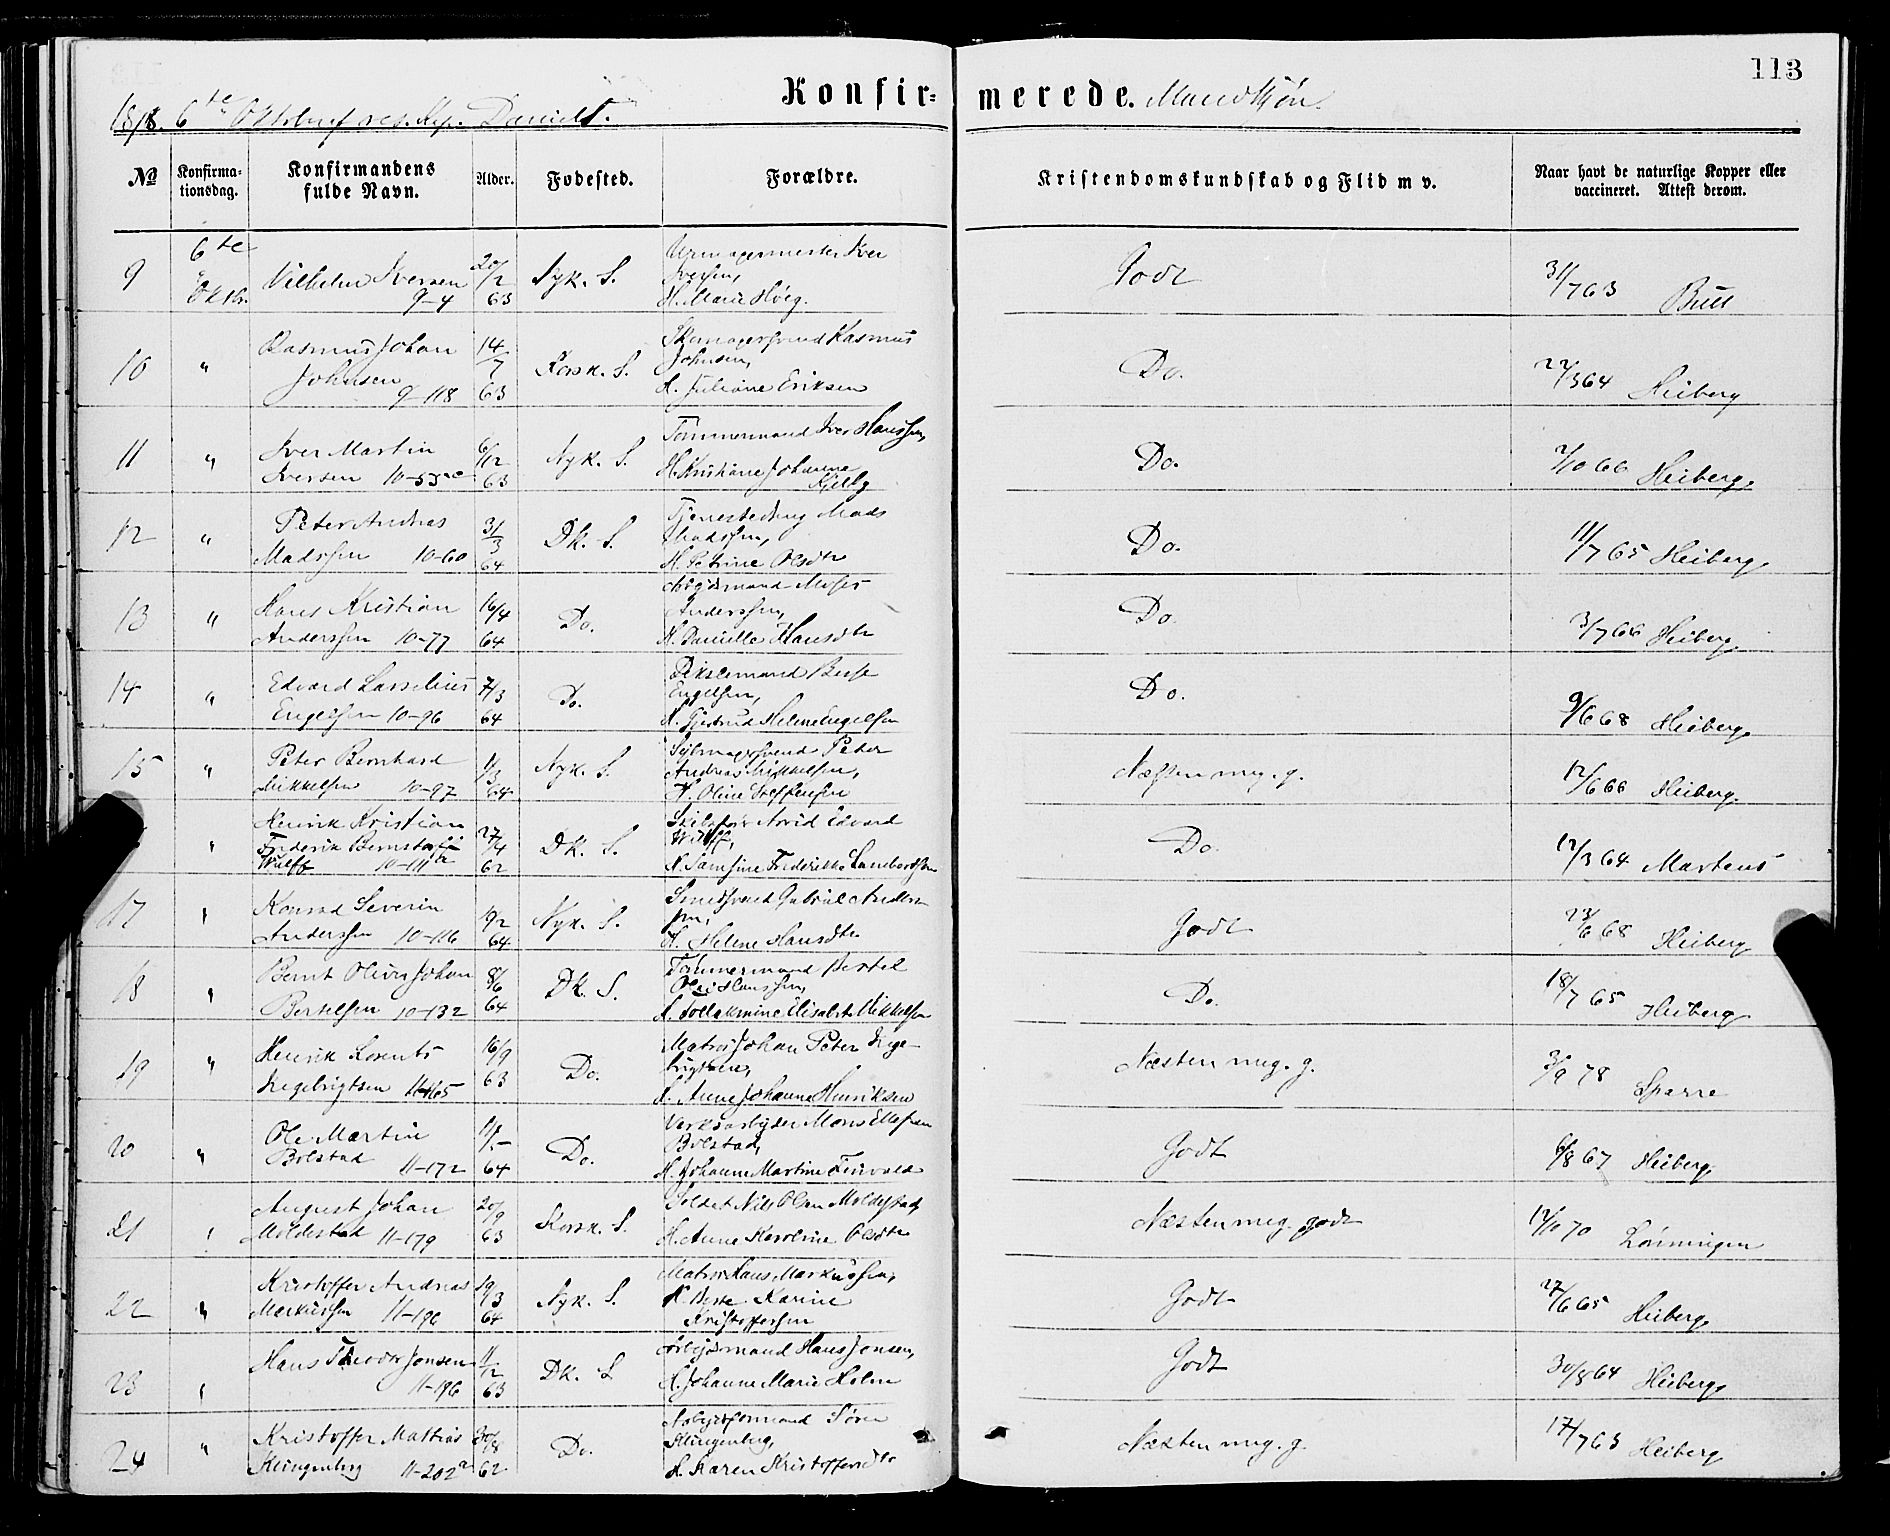 113
Konfir- merede. Mandkjøn.
1878. 6te Oktober res. Kap. Daniels.
No Konfirma- tionsdag. Konfirmandens fulde Navn. Alder. Fødested. Forældre. Kristendomskundskab og Flid m v. Naar havt de naturlige Kopper eller vaccineret. Attest derom.
9 6te Oktbr. Vilhelm Iversen 9-4 20/2 63 Nyk. S. Urmagermester Iver Iversen, H. Marie Høeg. Godt 31/7 63 Bull
10 " Rasmus Johan Johnsen 9-118 14/7 63 Korsk. S. Skomagersvend Rasmus Johnsen, H. Juliane Eriksen Do. 22/3 64 Heiberg
11 " Iver Martin Iversen 10-53 6/12 63 Nyk. S. Tømmermand Iver Hanssen, H. Kristiane Johanne Do. 2/10 66 Heiberg
12 " Peter Andreas Madssen 10-60 31/3 64 Dk. S. Tjenestedreng Mads Madssen, H. Petrine Olsdtr Do. 11/7 65 Heiberg
13 " Hans Kristian Anderssen 10-77 16/4 64 Do. Arbejdsmand Moses Anderssen, H. Danielle Hansdtr Do. 3/7 66 Heiberg
14 " Edvard Lasselius Engelsen 10-96 7/3 64 Do. Engelsen, H. Gjertrud Helene Engelsen Do. 9/6 68 Heiberg
15 " Peter Bernhard Mikkelsen 10-97 11/3 64 Nyk. S. Peter Andreas Mikkelsen, H. Oline Steffensen Næsten meg. g. 12/6 66 Heiberg
" Henrik Kristian Frederik Bernstorff Wulff 10-111 27/4 62 Dk. S. Arvid Edvard Wulff, H. Samsine Frederikke Lambertsen Do. 12/3 64 Martens
17 " Konrad Severin Anderssen 10-116 19/2 64 Nyk. S. Smedsvend Gabriel Anderssen, H. Helene Hansdtr Godt 23/6 68 Heiberg
18 " Bernt Oliver Johan Bertelsen 10-132 8/6 64 Dk. S. Tømmermand Bertel Hanssen, H. Elisabet Mikkelsen Do. 18/7 65 Heiberg
19 " Henrik Lorents Ingebrigtsen 11-165 16/9 63 Do. Matros Johan Peter Ingebrigtsen, H. Anne Johanne Henriksen Næsten meg. g. 3/9 78 Sparre
20 " Ole Martin Bolstad 11-172 64 Do. Værksarbejder Mons Bolstad, H. Johanne Martine Godt 6/8 67 Heiberg
21 " August Johan Moldestad 11-179 20/9 63 Korsk. S. Soldat Nils Olsen Moldestad, H. Anne Karoline Olsdtr Næsten meg. godt 12/11 70 Lønningen
22 " Kristoffer Andreas Markussen 11-190 19/3 64 Nyk. S. Matros Hans Markussen, H. Berte Karine Kristoffersen Godt 27/6 65 Heiberg
23 " Hans Theodor Jonsen 11-196 11/12 63 Dk. S. Arbejdsmand Hans Jonsen, H. Johanne Marie Holm Godt 30/8 64 Heiberg
24 " Kristoffer Mathias Klingenberg 11-202a 30/8 62 Do. Arbejdsformand Søren Klingenberg, H. Karen Kristoffersdtr Næsten meg. g. 17/7 63 Heiberg